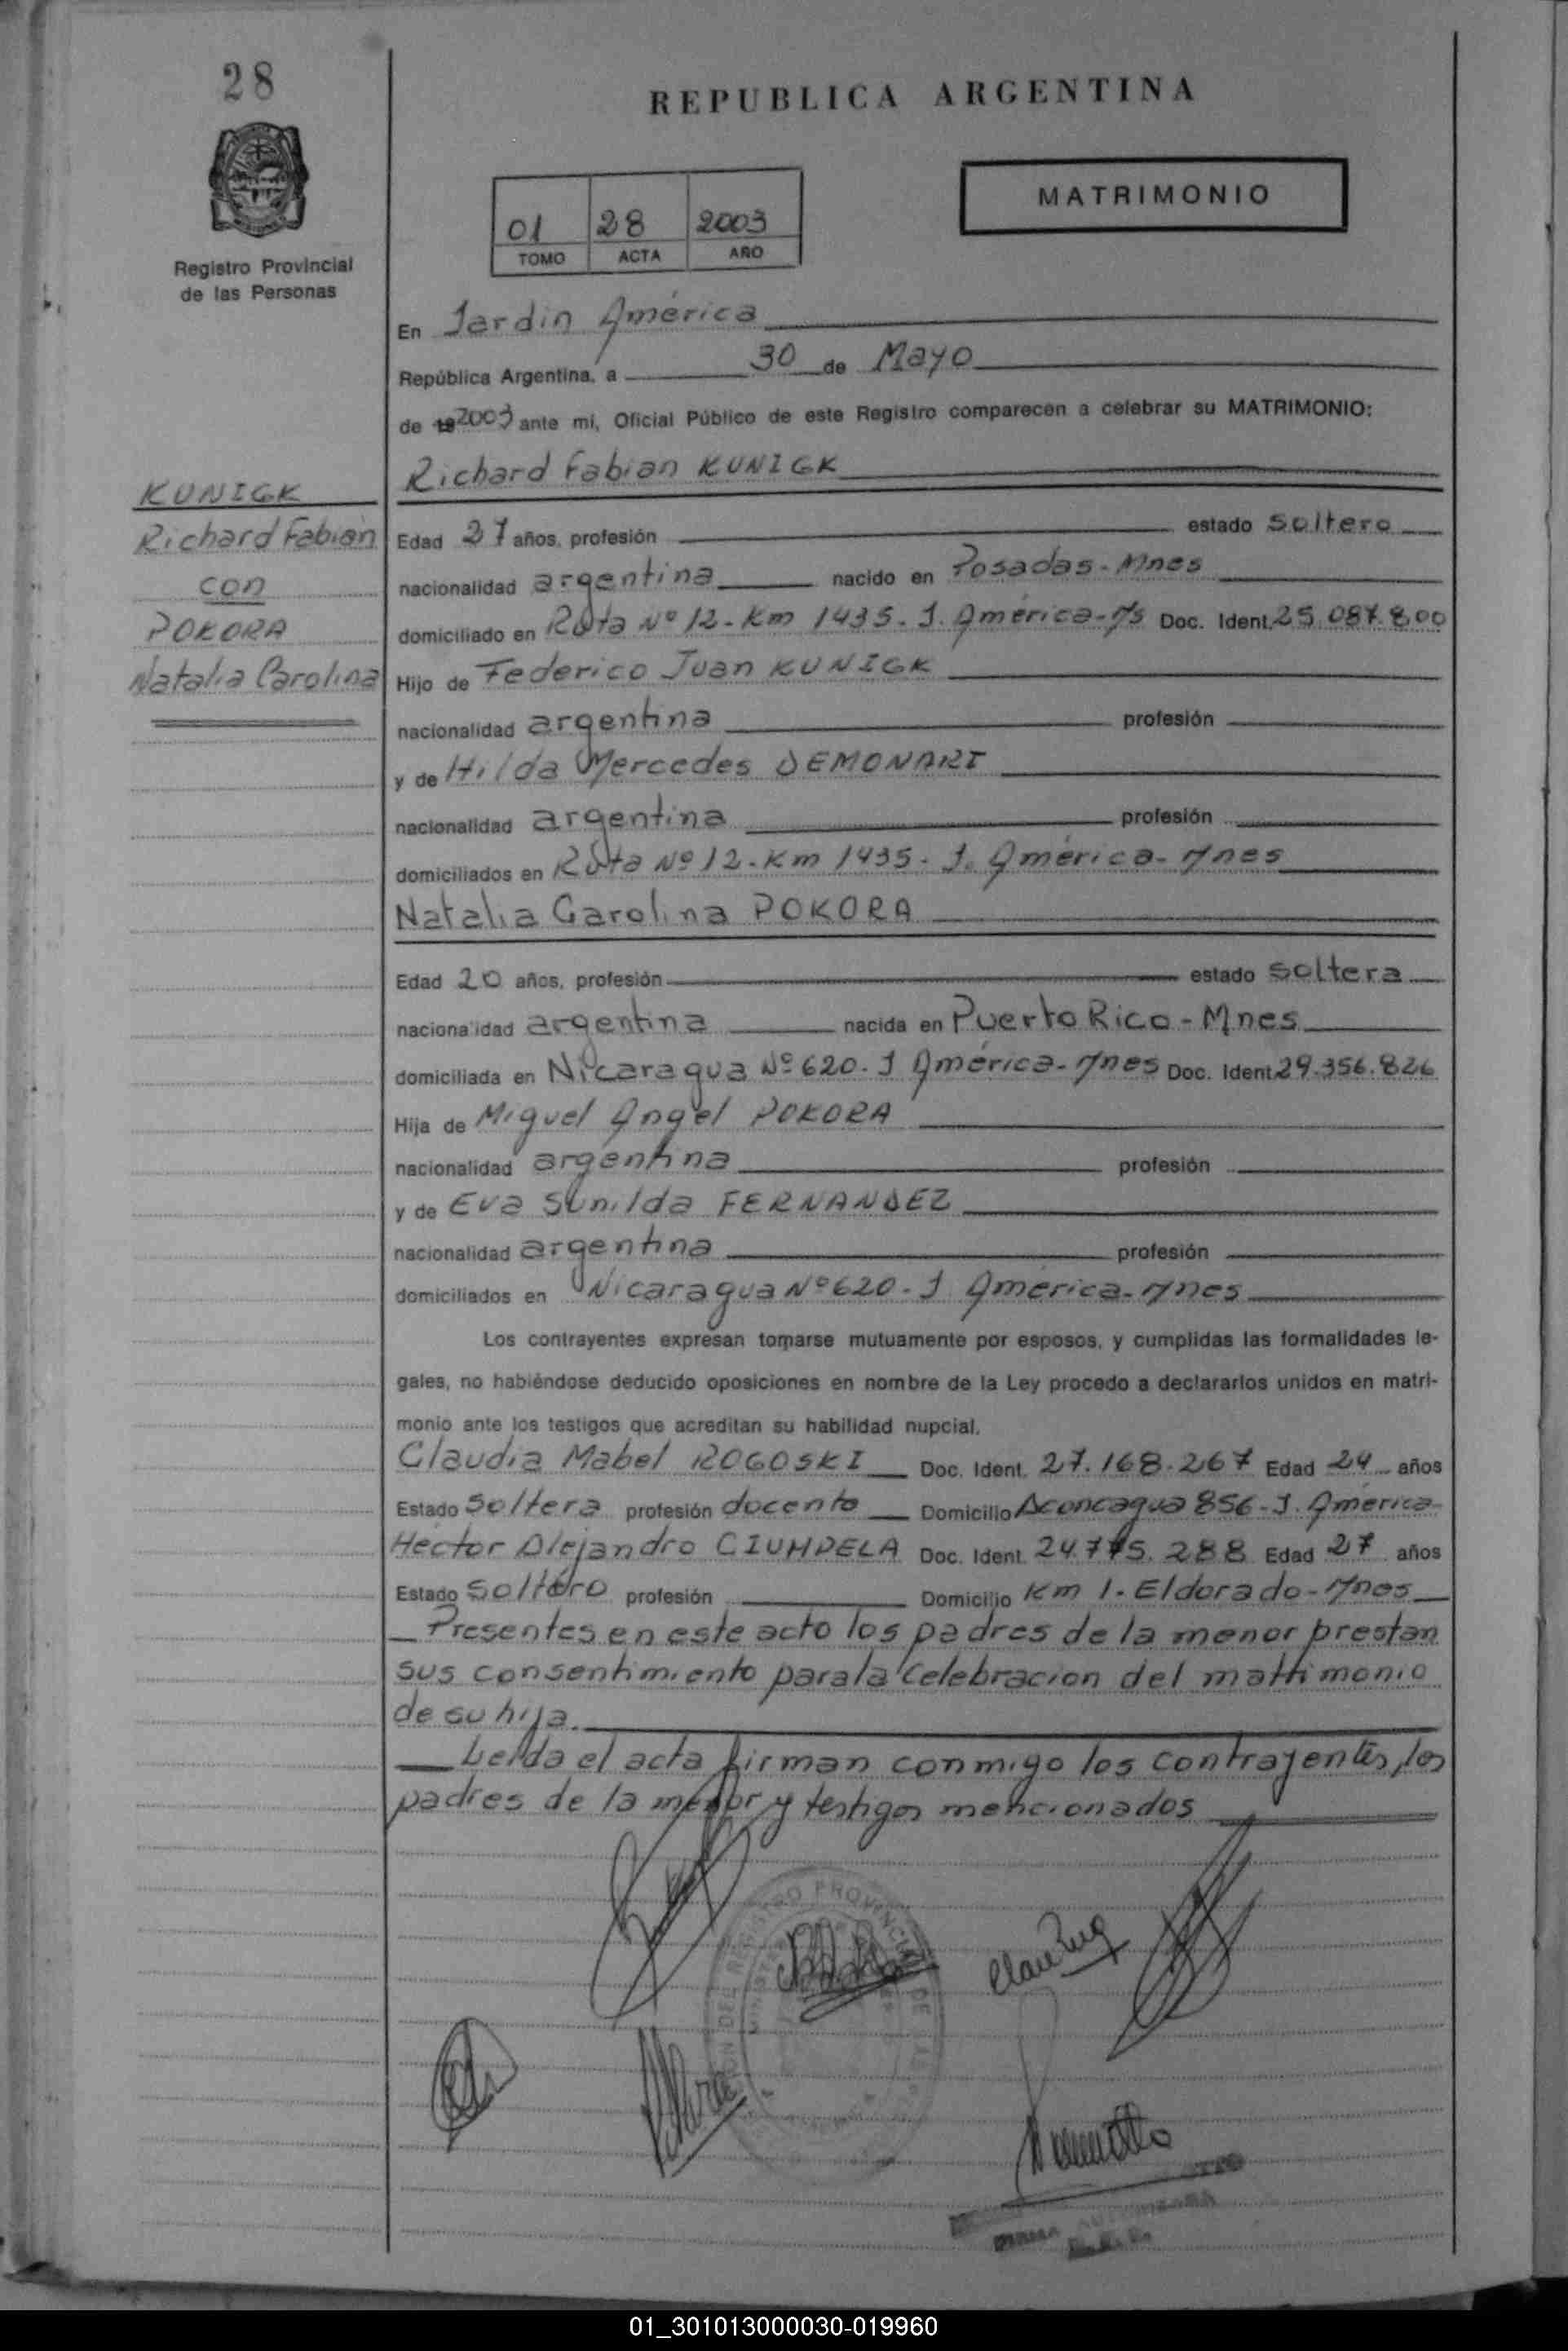 28
REPUBLICA ARGENTINA
Registro Provincial
de las Personas
01 28 2003
TOMO ACTA AÑO
MATRIMONIO
En Jardin América
República Argentina, a 30 de Mayo
de 19 2003 ante mi, Oficial Público de este Registro comparecen a celebrar su MATRIMONIO:
Richard Fabian KUNIGK
KUNIGK
Richard Fabián
con
POKORA
Natalia Carolina
Edad 27 años, profesión estado soltero
nacionalidad argentina nacido en Posadas-Mnes
domiciliado en Ruta Nº 12-Km 1435. J. América- Doc. Ident. 25.087.800
Hijo de Federico Juan KUNIGK
nacionalidad argentina profesión
y de Hilda Mercedes DEMONART
nacionalidad argentina profesión
domiciliados en Ruta Nº 12-Km 1435- J. América-Mnes
Natalia Carolina POKORA
Edad 20 años, profesión estado soltera
nacionalidad argentina nacida en Puerto Rico-Mnes
domiciliada en Nicaragua Nº 620. J América-Mnes Doc. Ident. 29.356.826
Hija de Miguel Angel POKORA
nacionalidad argentina profesión
y de Eva Sunilda FERNANDEZ
nacionalidad argentina profesión
domiciliados en Nicaragua Nº 620-J América-Mnes
Los contrayentes expresan tomarse mutuamente por esposos, y cumplidas las formalidades le-
gales, no habiéndose deducido oposiciones en nombre de la Ley procedo a declararlos unidos en matri-
monio ante los testigos que acreditan su habilidad nupcial.
Claudia Mabel ROGOSKI Doc. Ident. 27.168.267 Edad 24 años
Estado soltera profesión docente Domicilio Aconcagua 856-J. América-
Héctor Alejandro CIUHDELA Doc. Ident. 24.775.288 Edad 27 años
Estado soltero profesión Domicilio Km 1-Eldorado-Mnes
Presentes en este acto los padres de la menor prestan
sus consentimiento para la celebracion del matrimonio
de su hija.
Leída el acta firman conmigo los contrayentes, los
padres de la menor y testigos mencionados
01_301013000030-019960